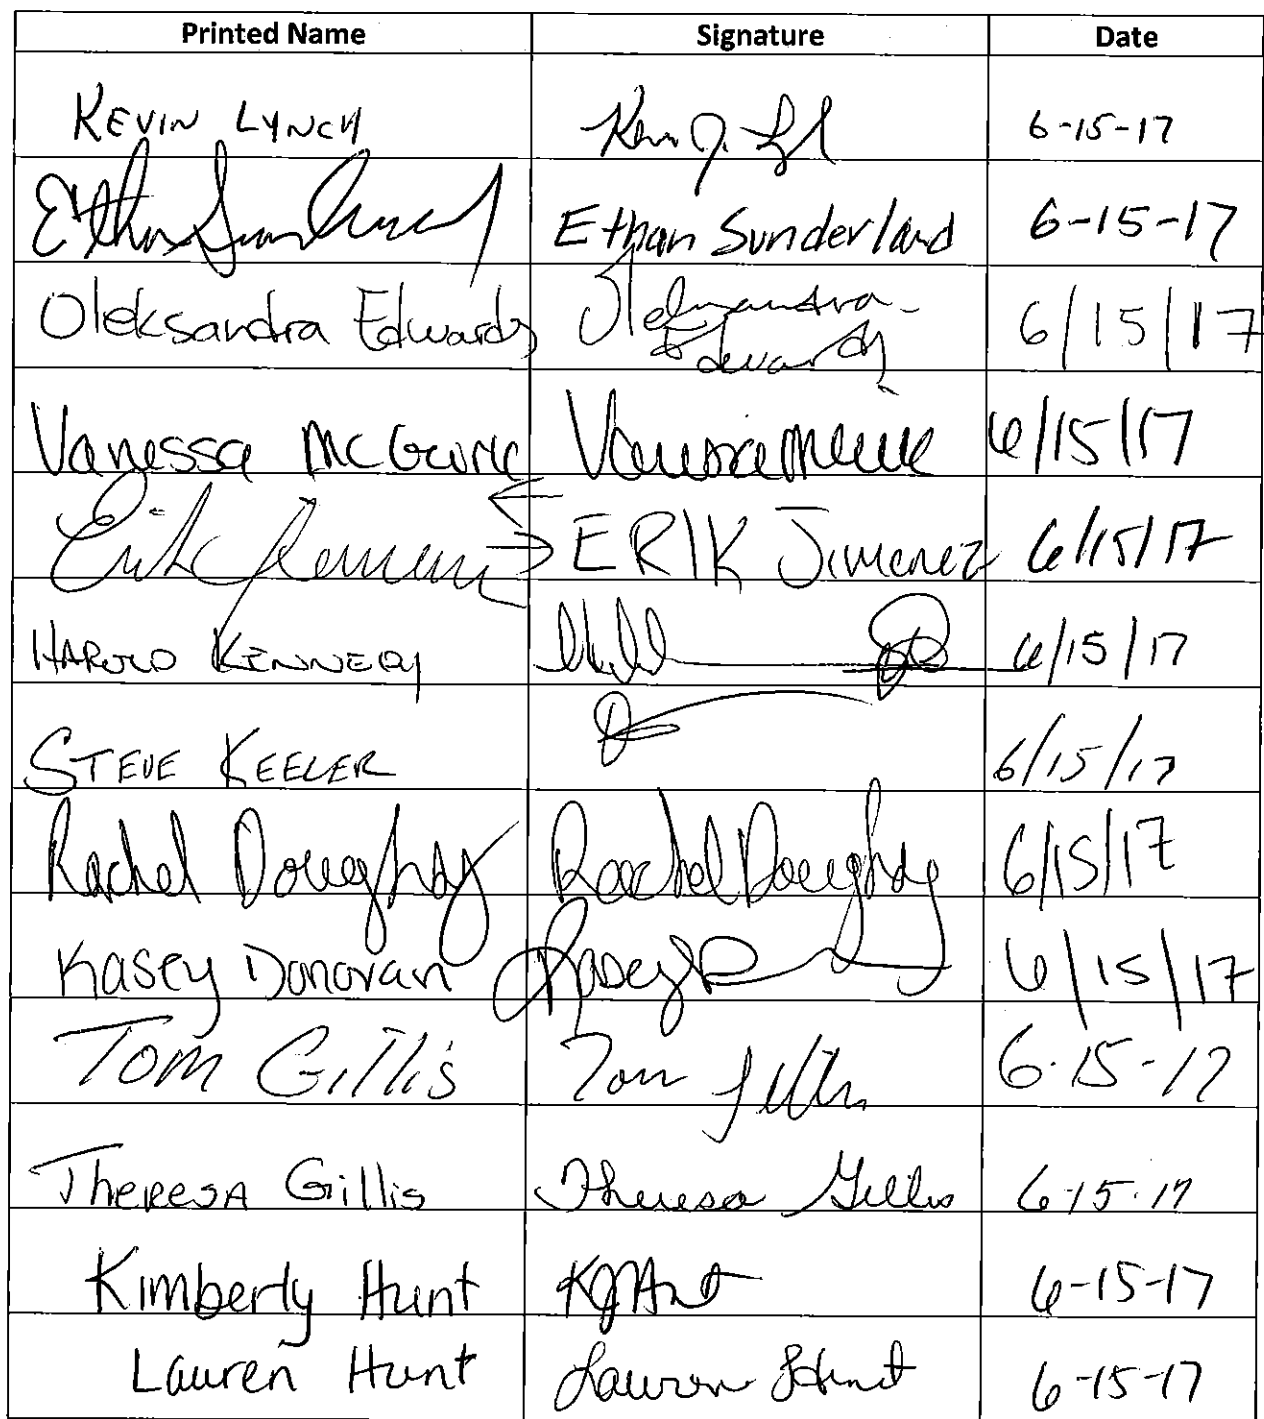 Printed Name Signature Date
KEVIN LYNCH Kevin J. 6-15-17
Ethan Sunderland Ethan Sunderland 6-15-17
Oleksandra Edwards Oleksandra Edwards 6/15/17
Vanessa McGuire Vanessa McGuire 6/15/17
Erik Jimenez ERIK Jimenez 6/15/17
HAROLD KENNEDY 6/15/17
STEVE KEELER 6/15/17
Rachel Doughty Rachel Doughty 6/15/17
Kasey Donovan Kasey D 6/15/17
Tom Gillis Tom Gillis 6-15-17
Theresa Gillis Theresa Gillis 6-15-17
Kimberly Hunt KJHunt 6-15-17
Lauren Hunt Lauren Hunt 6-15-17